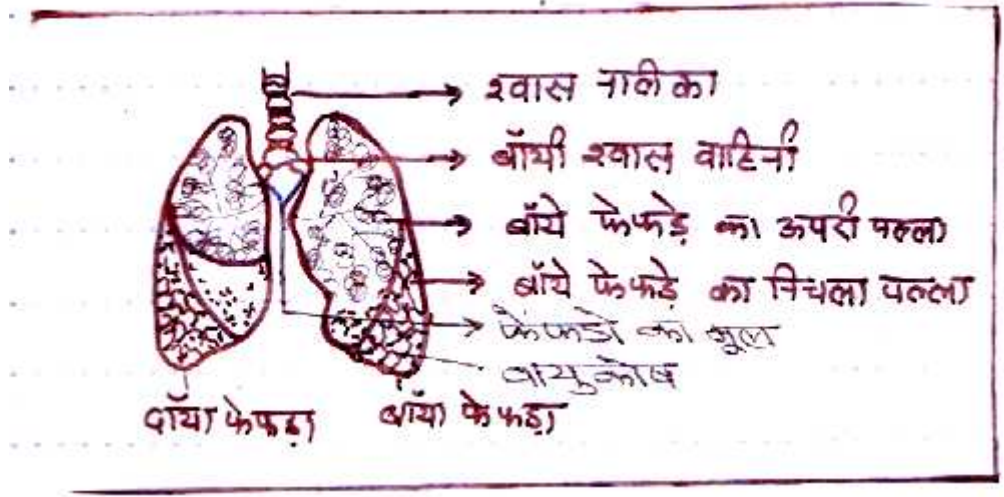 श्वास नालिका
बाँयी श्वास वाहिनी
बाँये फेफड़े का ऊपरी पल्ला
बाँये फेफड़े का निचला पल्ला
फेफडो का मूल
वायुकोष
दाँया फेफड़ा
बाँया फेफड़ा